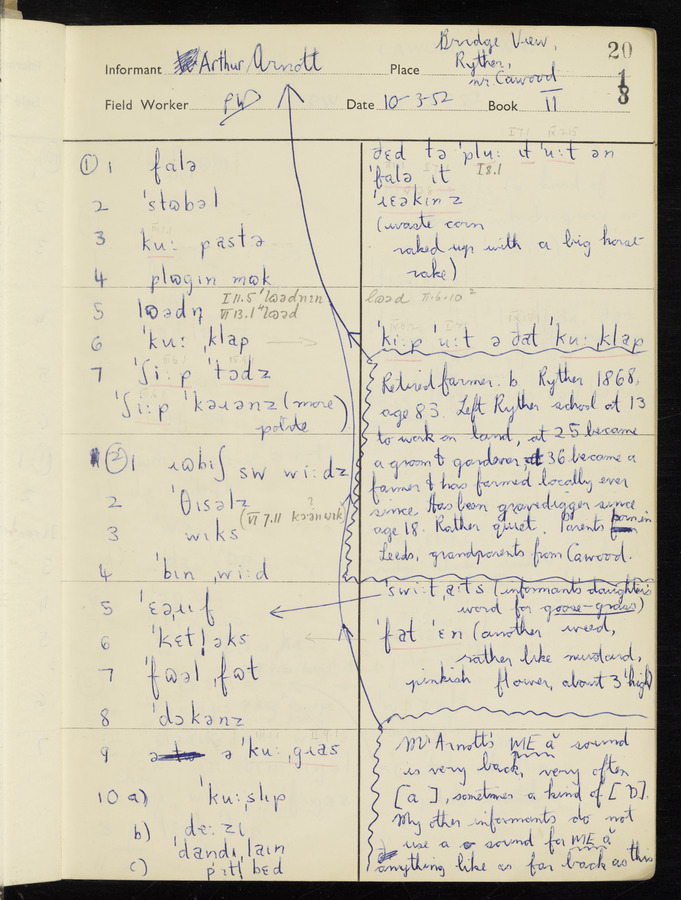 Bridge View,
Ryther,
nr Cawood
20
1
8
Informant Arthur Arnott Place
Field Worker PW Date 10-3-52 Book II
① 1 falə
2 ˈstɒbəl
3 kuː pastə
4 plɒgin mak
5 lɒədn
I 11.5 ˈlɒədnɪn
VI 13.1 ˈlɒəd
6 ˈkuː ˌklap
7 ˈʃiːp ˈtɒdz
ˈʃiːp ˈkəɹənz (more
polite)
② 1 ɹɒbiʃ sw wiːdz
2 ˈθisəlz
3 wiks
(VI 7.11
4 ˈbinˌwiːd
5 ˈɛəˌɹif
6 ˈkɛtl̩əks
7 ˈfɒəlˌfɒt
8 ˈdɔkənz
9 ə ˈkuːˌgɹas
10 a) ˈkuːslip
b) deːzi
ˈdandiˌlain
c) ˈpɪtlˌbɛd
ðɛd tə ˈpluː it ˈuːt ən
ˈfalə it
I 8.1
ˈɹɛəkinz
(waste corn
raked up with a big horse-
rake)
lɒəd VI.6.10²
ˈkiːp ˈuːt ə ðat ˈkuːˌklap
Retired farmer. b Ryther 1868,
age 83. Left Ryther school at 13
to work on land, at 25 became
a groom & gardener, at 36 became a
farmer & has farmed locally ever
since. Has been gravedigger since
age 18. Rather quiet. Parents born in
Leeds, grandparents from Cawood.
ˈswiːtˌaːts (informant's daughter's
word for goose-grass)
ˈfat ˈɛn (another weed,
rather like mustard,
pinkish flower, about 3' high)
Mr Arnott's ME ă sound
is very back, very often
[ɑ], sometimes a kind of [ɒ].
My other informants do not
use a sound for ME ă
anything like as far back as this